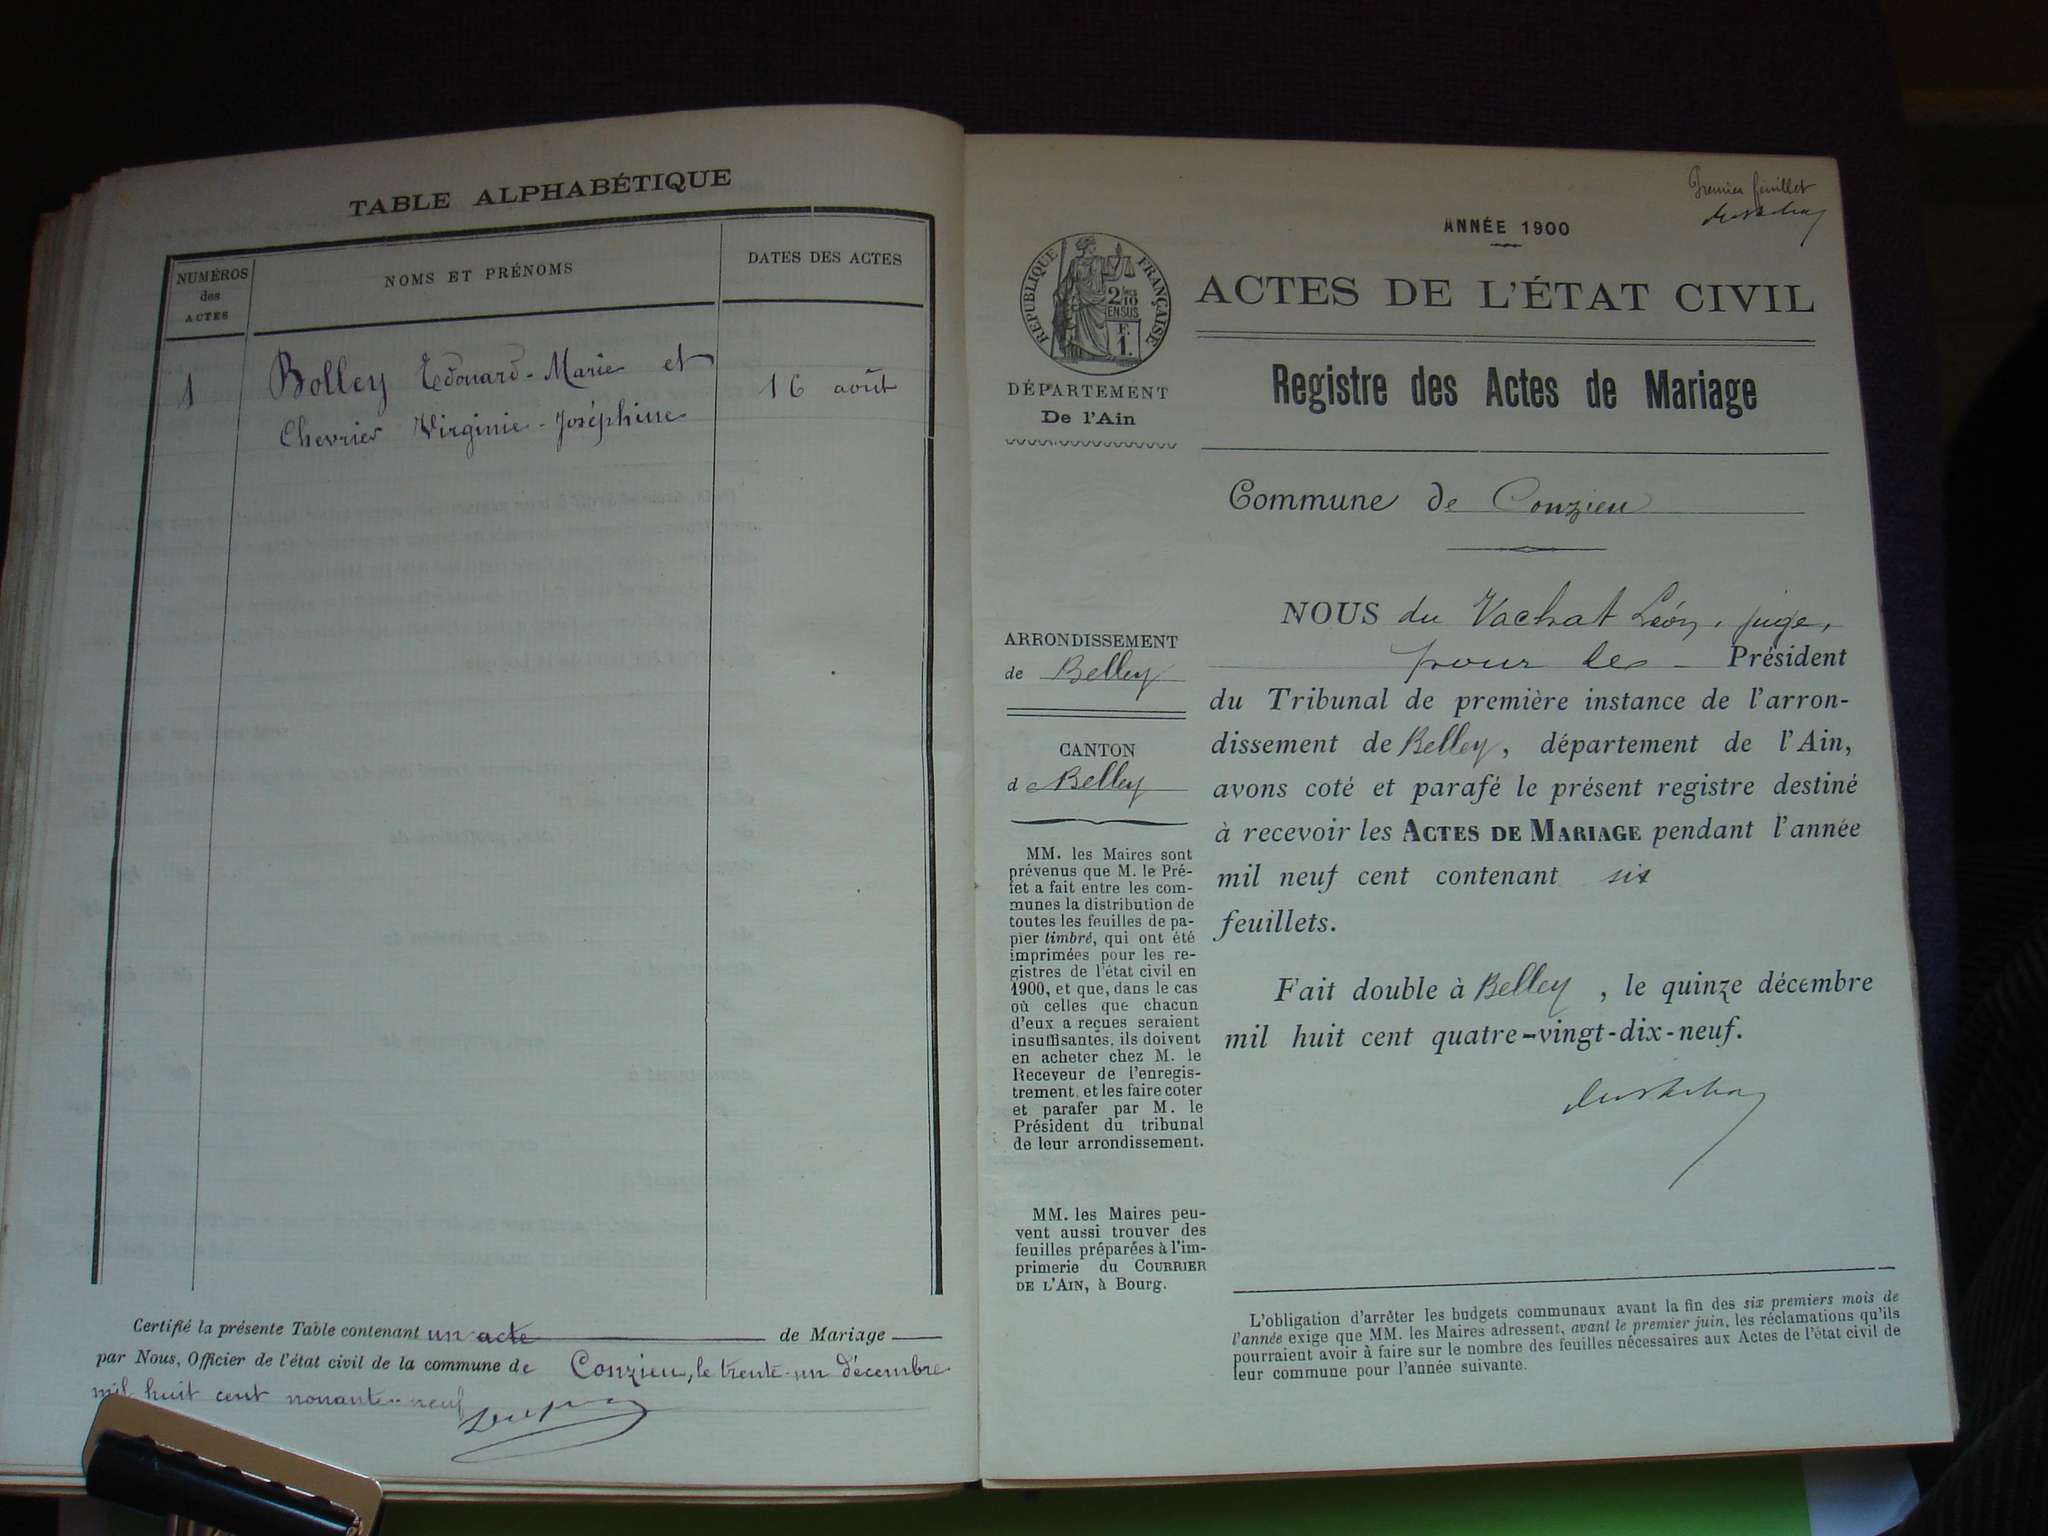 TABLE ALPHABÉTIQUE
NUMÉROS
des
ACTES
NOMS ET PRÉNOMS
DATES DES ACTES
1
Bolley Edouard-Marie et
16 août
Chevrier Virginie-Joséphine
Certifié la présente Table contenant un acte de Mariage
par Nous, Officier de l'état civil de la commune de Conzieu, le trente-un décembre
mil huit cent nonante-neuf
Premier feuillet
ANNÉE 1900
RÉPUBLIQUE FRANÇAISE
2/10
EN SUS
F.
1.
DÉPARTEMENT
De l'Ain
ACTES DE L'ÉTAT CIVIL
Registre des Actes de Mariage
Commune de Conzieu
ARRONDISSEMENT
de Belley
CANTON
de Belley
MM. les Maires sont
prévenus que M. le Pré-
fet a fait entre les com-
munes la distribution de
toutes les feuilles de pa-
pier timbré, qui ont été
imprimées pour les re-
gistres de l'état civil en
1900, et que, dans le cas
où celles que chacun
d'eux a reçues seraient
insuffisantes, ils doivent
en acheter chez M. le
Receveur de l'enregis-
trement, et les faire coter
et parafer par M. le
Président du tribunal
de leur arrondissement.
MM. les Maires peu-
vent aussi trouver des
feuilles préparées à l'im-
primerie du COURRIER
DE L'AIN, à Bourg.
NOUS du Vachat Léon, juge,
pour le Président
du Tribunal de première instance de l'arron-
dissement de Belley, département de l'Ain,
avons coté et parafé le présent registre destiné
à recevoir les ACTES DE MARIAGE pendant l'année
mil neuf cent contenant six
feuillets.
Fait double à Belley, le quinze décembre
mil huit cent quatre-vingt-dix-neuf.
L'obligation d'arrêter les budgets communaux avant la fin des six premiers mois de
l'année exige que MM. les Maires adressent, avant le premier juin, les réclamations qu'ils
pourraient avoir à faire sur le nombre des feuilles nécessaires aux Actes de l'état civil de
leur commune pour l'année suivante.